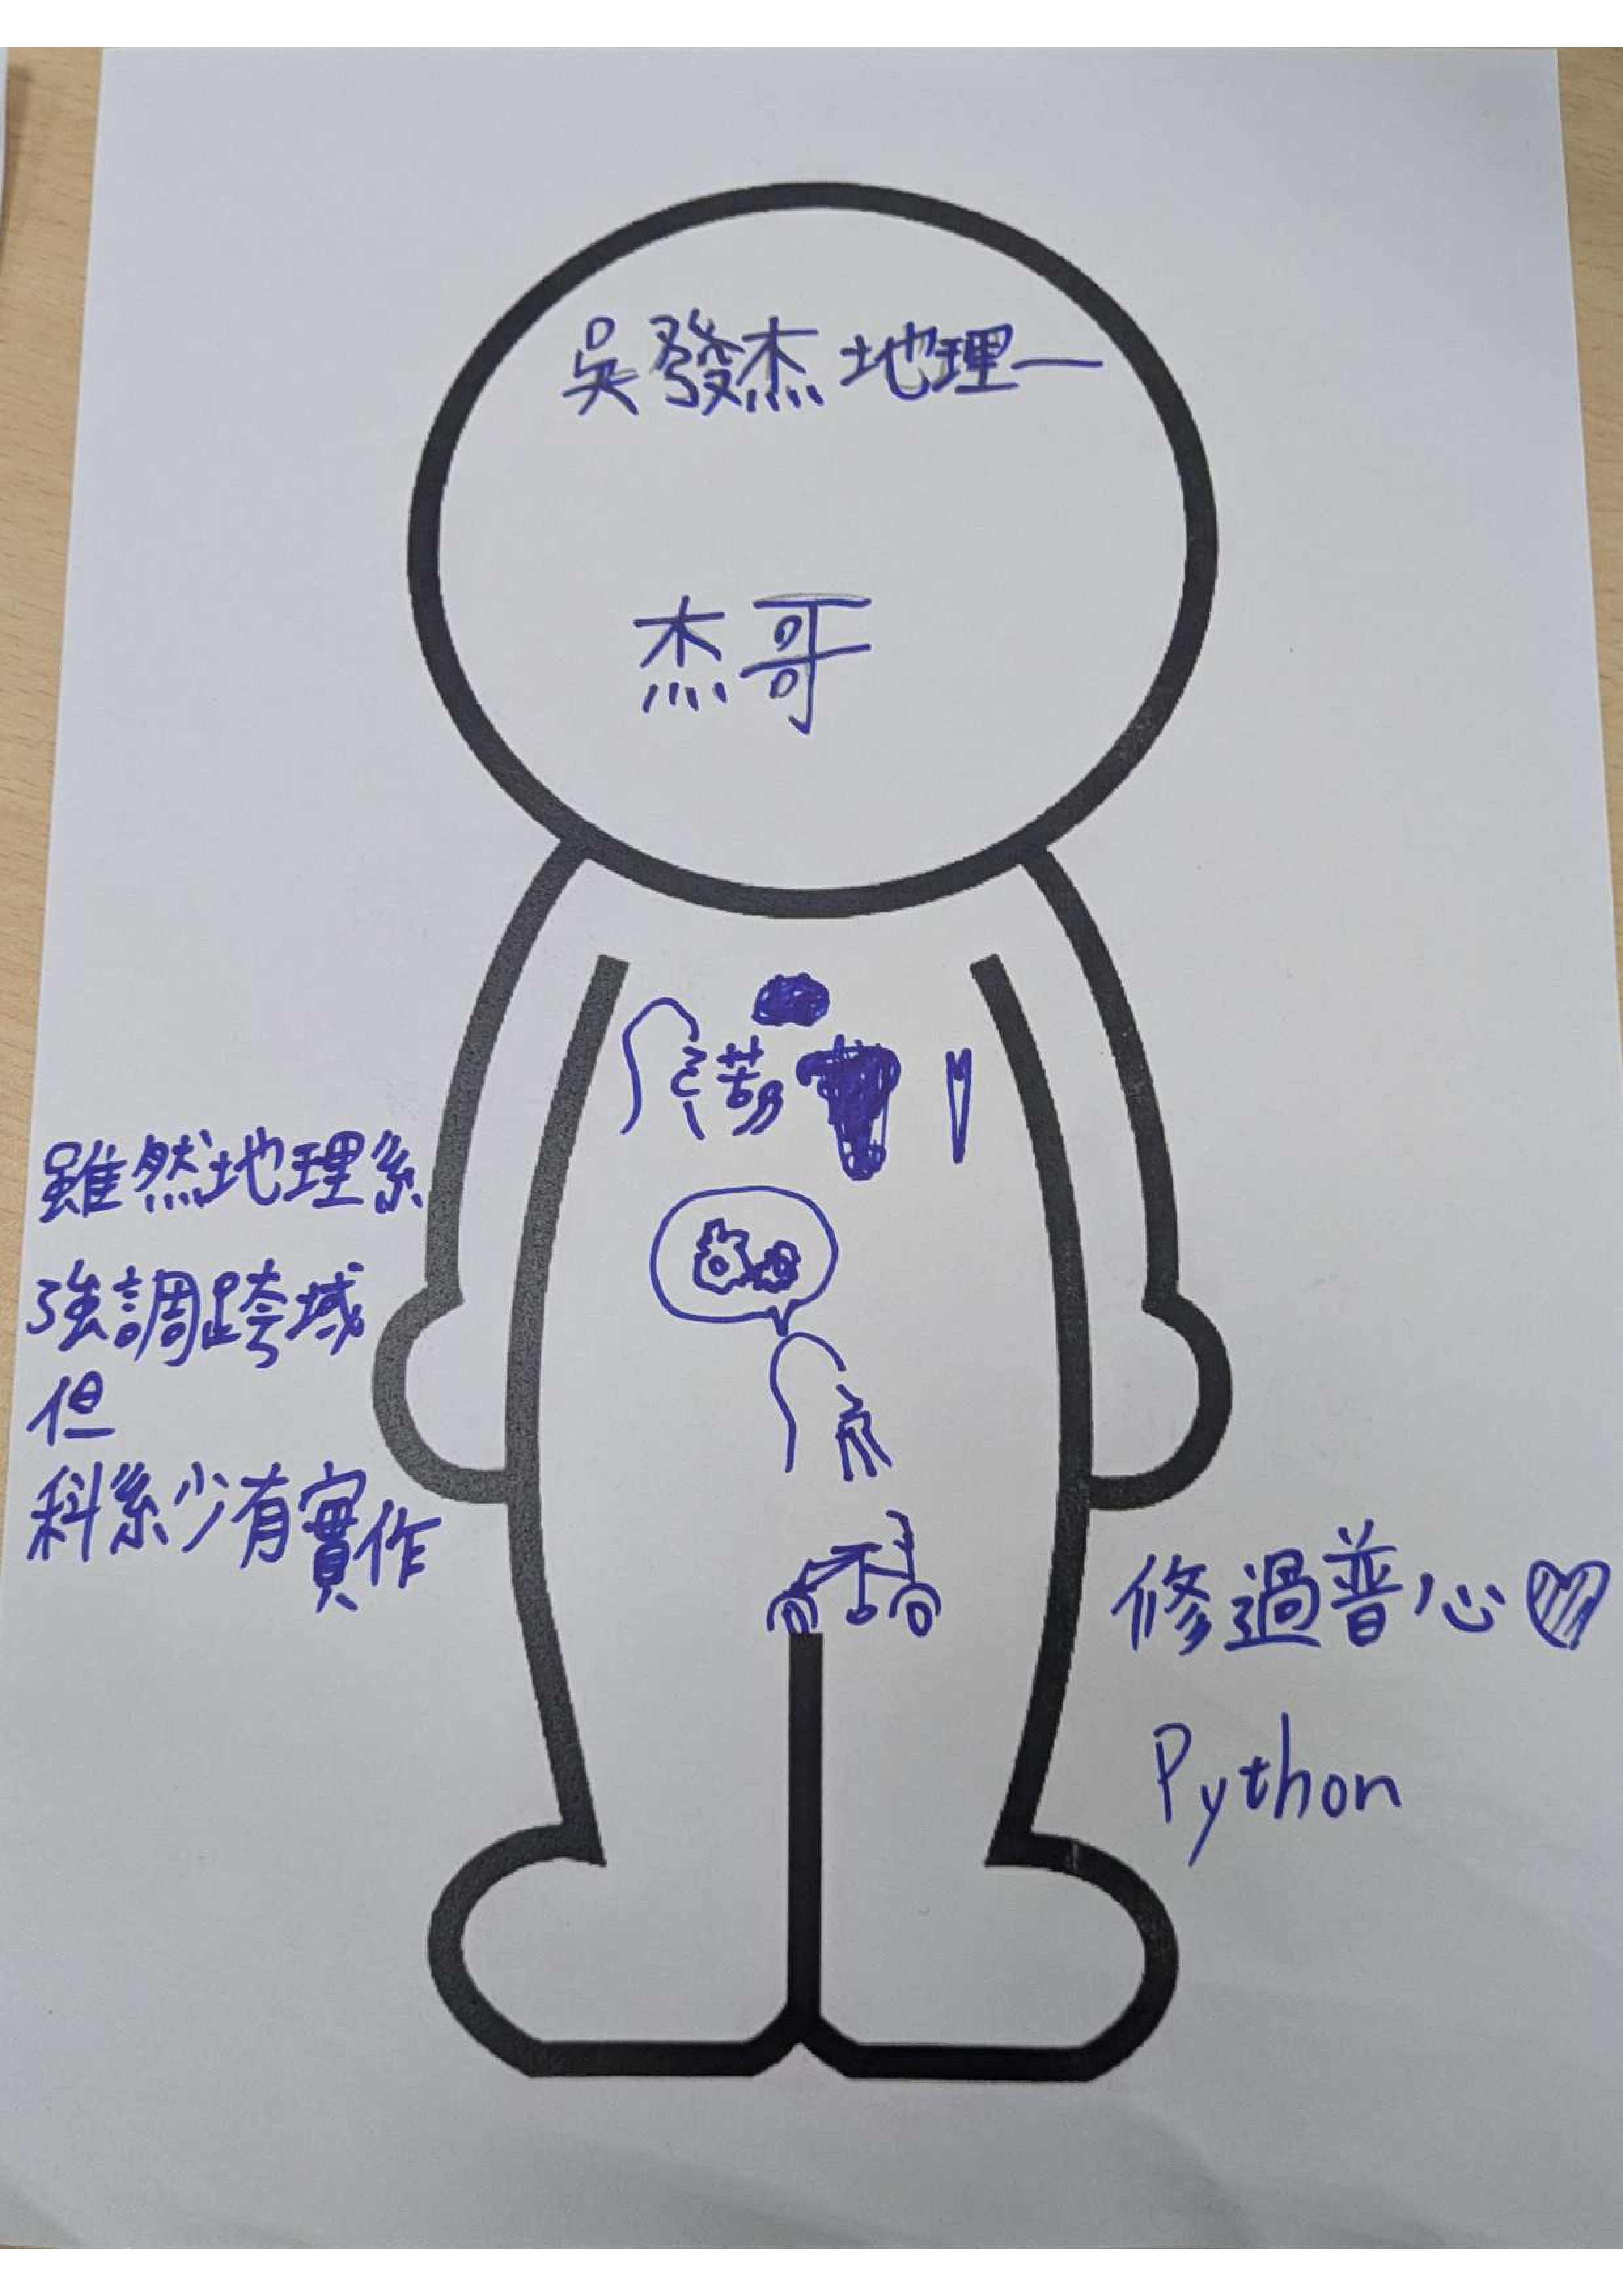 吳發杰 地理一
杰哥
雖然地理系
強調跨域
但
科系少有實作
修過普心
Python